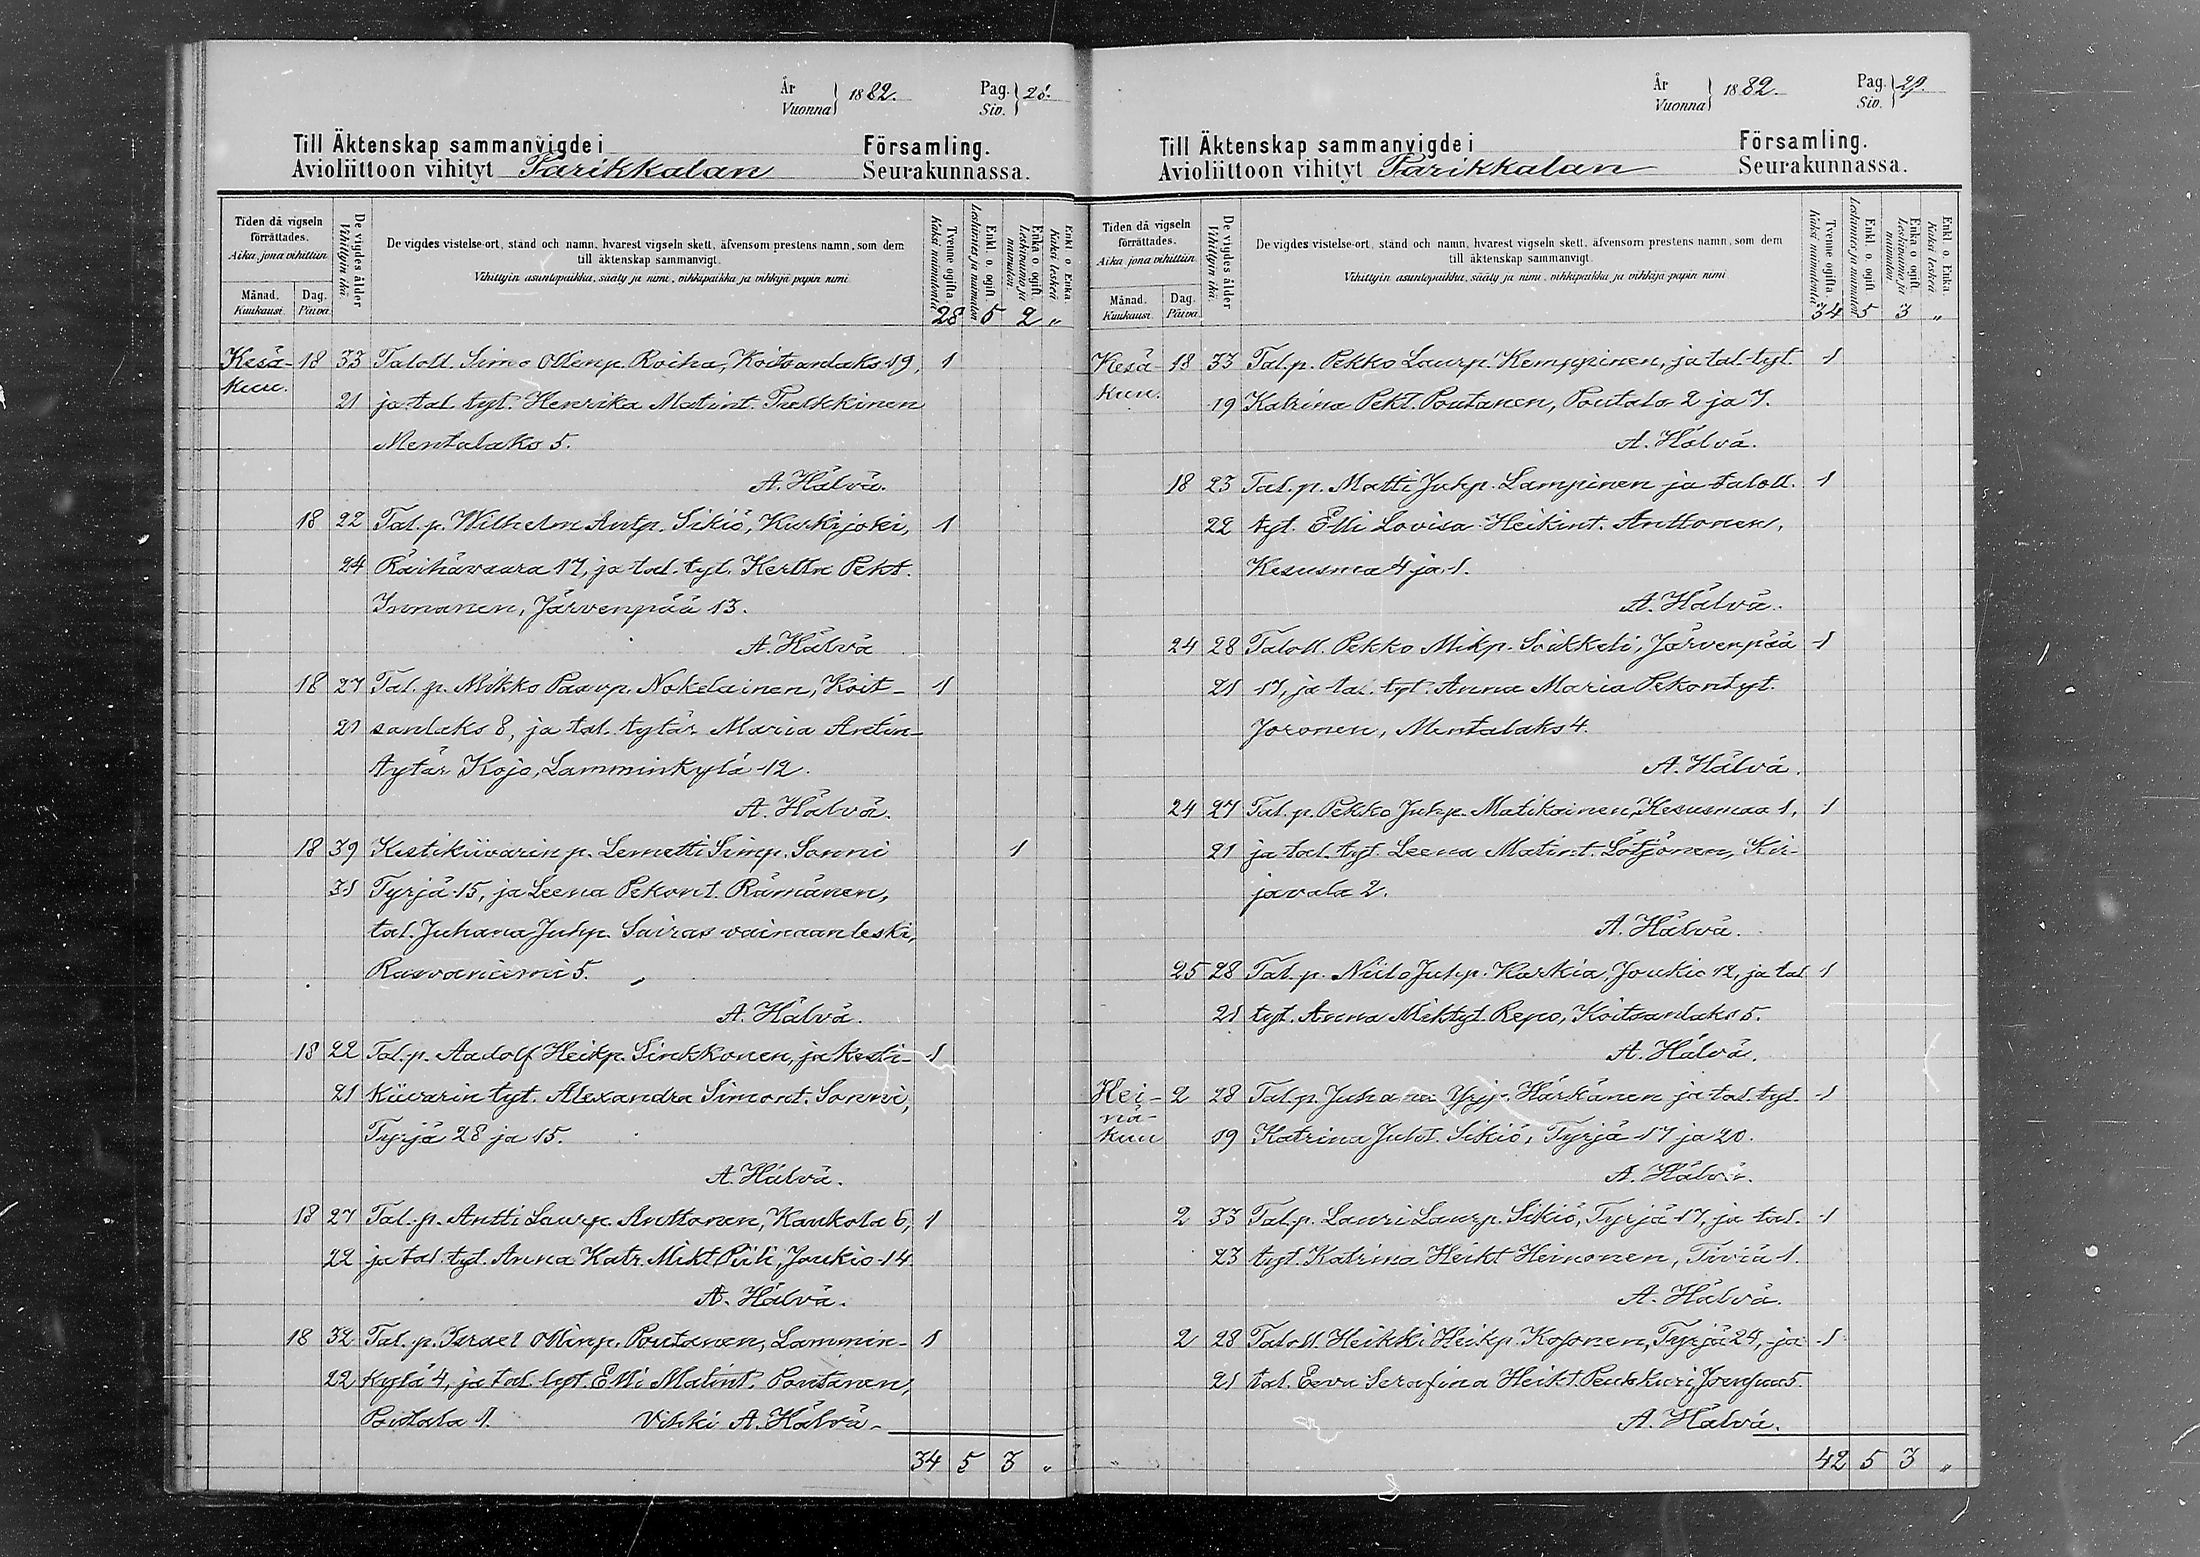 År
Vuonna } 1882.
Pag.
Siv. } 28.
Till Äktenskap sammanvigde i Församling.
Avioliittoon vihityt Parikkalan Seurakunnassa.
Tiden då vigseln förrättades.
Aika, jona vihittiin.
Månad. Dag.
Kuukausi. Päivä.
De vigdes ålder
Vihittyin ikä.
De vigdes vistelse-ort, stånd och namn, hvarest vigseln skett, äfvensom prestens namn, som dem
till äktenskap sammanvigt.
Vihittyin asuntopaikka, sääty ja nimi, vihkipaikka ja vihkijä-papin nimi
Tvenne ogifta
Kaksi naimatonta
Enkl. o. ogift.
Leskimies ja naimaton
Enka o. ogift.
Leskivaimo ja naimaton
Enkl o. Enka.
Kaksi leskeä
28 5 2 „
Kesä- 18 33 Taloll. Simo Ollinp. Roiha, Koitsanlaks 19, 1
kuu. 21 ja tal. tyt. Henrika Matint. Pulkkinen
Mentalaks 5.
A. Hälvä.
18 22 Tal. p. Wilhelm Antp. Sikiö, Kurkijoki, 1
24 Räihävaara 17, ja tal. tyt. Kerttu Pekt.
Innanen, Järvenpää 13.
A. Hälvä
18 27 Tal. p. Mikko Paavp. Nokelainen, Koit- 1
21 sanlaks 8, ja tal. tytär Maria Antin-
tytär Kojo, Lamminkylä 12.
A. Hälvä.
18 39 Kestikiivarin p. Lemetti Simp. Sonni 1
31 Tyrjä 15, ja Leena Pekont. Rämänen,
tal. Juhana Juhp. Sairas vainaan leski,
Rasvaniemi 5.
A. Hälvä.
18 22 Tal. p. Aadolf Heikp. Sinkkonen, ja kesti- 1
21 kiivarin tyt. Alexandra Simont. Sonni,
Tyrjä 28 ja 15.
A. Hälvä.
18 27 Tal. p. Antti Laurp. Anttonen, Kaukola 6, 1
22 ja tal. tyt. Anna Katr. Mikt Piili, Joukio 14.
A. Hälvä.
18 32 Tal. p. Israel Ollinp. Poutanen, Lammin- 1
22 kylä 4, ja tal. tyt. Elli Matint. Poutanen,
Poutala 1. Vihki A. Hälvä
34 5 3 „
År
Vuonna } 1882.
Pag.
Siv. } 29.
Till Äktenskap sammanvigde i Församling.
Avioliittoon vihityt Parikkalan Seurakunnassa.
Tiden då vigseln förrättades.
Aika, jona vihittiin.
Månad. Dag.
Kuukausi. Päivä.
De vigdes ålder
Vihittyin ikä.
De vigdes vistelse-ort, stånd och namn, hvarest vigseln skett, äfvensom prestens namn, som dem
till äktenskap sammanvigt.
Vihittyin asuntopaikka, sääty ja nimi, vihkipaikka ja vihkijä-papin nimi
Tvenne ogifta
Kaksi naimatonta
Enkl. o. ogift.
Leskimies ja naimaton
Enka o ogift.
Leskivaimo ja naimaton
Enkl o. Enka.
Kaksi leskeä
34 5 3 „
Kesä 18 33 Tal. p. Pekko Laurp. Kemppinen, ja tal. tyt. 1
kuu. 19 Katrina Pekt. Poutanen, Poutala 2 ja 7.
A. Hälvä.
18 23 Tal. p. Matti Juhp. Lampinen ja taloll. 1
22 tyt. Elli Lovisa Heikint. Anttonen,
Kesusmaa 4 ja 1.
A. Hälvä.
24 28 Taloll. Pekko Mikp. Soikkeli, Järvenpää 1
21 17, ja tal. tyt. Anna Maria Pekontyt.
Joronen, Mentalaks 4.
A. Hälvä.
24 27 Tal. p. Pekko Juhp. Matikainen, Kesusmaa 1, 1
21 ja tal. tyt. Leena Matint. Sötjönen, Kir-
javala 2.
A. Hälvä.
25 28 Tal. p. Niilo Juhp. Karkia, Joukio 12, ja tal 1
21 tyt. Anna Miktyt. Repo, Koitsanlaks 5.
A. Hälvä.
Hei- 2 28 Tal. p. Juhana Yrjp. Härkänen ja tal. tyt. 1
nä-
kuu 19 Katrina Juht. Sikiö, Tyrjä 17 ja 20.
A. Hälvä.
2 33 Tal. p. Lauri Laurp. Sikiö, Tyrjä 17, ja tal. 1
23 tyt. Katrina Heikt Heinonen, Tiviä 1.
A. Hälvä.
2 28 Taloll. Heikki Heikp. Kosonen, Tyrjä 24, ja 1
21 tal. Eeva Serafina Heikt. Peukkuri, 5.
A. Hälvä.
42 5 3 „